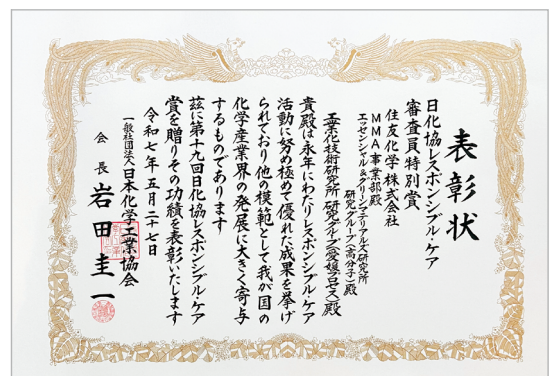 表彰状
日化協レスポンシブル・ケア
審査員特別賞
住友化学株式会社
MMA事業部殿
エッセンシャル&グリーンマテリアルズ研究所
研究グループ(高分子)殿
工業化技術研究所 研究グループ(愛媛プロセス)殿
貴殿は永年にわたりレスポンシブル・ケア
活動に努め極めて優れた成果を挙げ
られており他の模範として我が国の
化学産業界の発展に大きく寄与
するものであります
茲に第十九回日化協レスポンシブル・ケア
賞を贈りその功績を表彰いたします
令和七年五月二十七日
一般社団法人日本化学工業協会
会長 岩田圭一